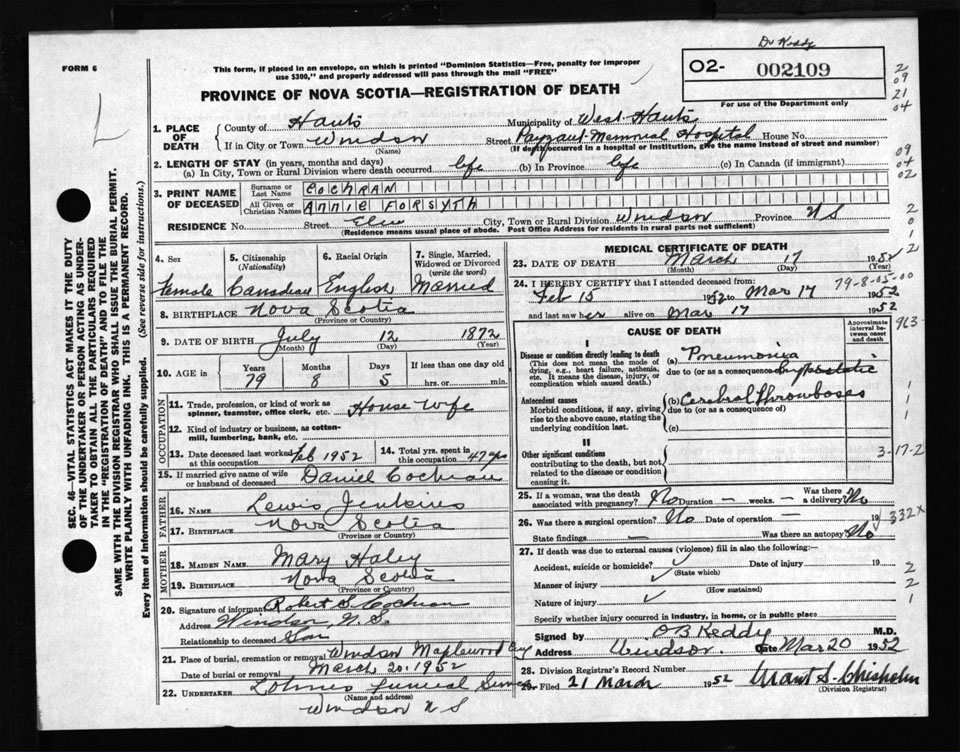 Dr Keddy
FORM 6
This form, if placed in an envelope, on which is printed "Dominion Statistics—Free, penalty for improper
use $300," and properly addressed will pass through the mail "FREE"
PROVINCE OF NOVA SCOTIA—REGISTRATION OF DEATH
O2- 002109
For use of the Department only
2
09
21
04
1. PLACE OF DEATH
County of Hants Municipality of West Hants
If in City or Town Windsor Street Payzant Memorial Hospital House No.
(Name) (If death occurred in a hospital or institution, give the name instead of street and number)
2. LENGTH OF STAY (in years, months and days)
(a) In City, Town or Rural Division where death occurred life (b) In Province life (c) In Canada (if immigrant)
09
04
02
3. PRINT NAME OF DECEASED
Surname or Last Name COCHRAN
All Given or Christian Names ANNIE FORSYTH
RESIDENCE No. Street Elm City, Town or Rural Division Windsor Province N S
(Residence means usual place of abode. Post Office Address for residents in rural parts not sufficient)
2
0
1
2
SEC. 46—VITAL STATISTICS ACT MAKES IT THE DUTY
OF THE UNDERTAKER OR PERSON ACTING AS UNDER-
TAKER TO OBTAIN ALL THE PARTICULARS REQUIRED
IN THE "REGISTRATION OF DEATH" AND TO FILE THE
SAME WITH THE DIVISION REGISTRAR WHO SHALL ISSUE THE BURIAL PERMIT.
WRITE PLAINLY WITH UNFADING INK. THIS IS A PERMANENT RECORD.
Every item of information should be carefully supplied. (See reverse side for instructions.)
4. Sex
Female
5. Citizenship
(Nationality)
Canadian
6. Racial Origin
English
7. Single, Married,
Widowed or Divorced
(write the word)
Married
8. BIRTHPLACE Nova Scotia
(Province or Country)
9. DATE OF BIRTH July 12 1872
(Month) (Day) (Year)
10. AGE in Years Months Days If less than one day old
79 8 5 hrs. or min.
OCCUPATION
11. Trade, profession, or kind of work as
spinner, teamster, office clerk, etc. House Wife
12. Kind of industry or business, as cotton-
mill, lumbering, bank, etc.
13. Date deceased last worked
at this occupation Feb 1952
14. Total yrs. spent in
this occupation 47 yrs
15. If married give name of wife
or husband of deceased Daniel Cochran
FATHER
16. Name Lewis Jenkins
17. Birthplace Nova Scotia
(Province or Country)
MOTHER
18. MAIDEN NAME Mary Haley
19. BIRTHPLACE Nova Scotia
(Province or Country)
20. Signature of informant Robert S. Cochran
Address Windsor, N. S.
Relationship to deceased Son
21. Place of burial, cremation or removal Windsor Maplewood
Date of burial or removal March 20, 1952
22. UNDERTAKER Funeral
(Name and address)
Windsor N S
MEDICAL CERTIFICATE OF DEATH
23. DATE OF DEATH March 17 1952
(Month) (Day) (Year)
24. I HEREBY CERTIFY that I attended deceased from: 79-8-05-00
Feb 15 1952 to Mar 17 1952
and last saw her alive on Mar 17 1952
CAUSE OF DEATH
Approximate
interval between
onset
and death
963-
I
Disease or condition directly leading to death
(This does not mean the mode of
dying, e.g., heart failure, asthenia,
etc. It means the disease, injury, or
complication which caused death.)
(a) Pneumonia
due to (or as a consequence of) hypostatic
Antecedent causes
Morbid conditions, if any, giving
rise to the above cause, stating the
underlying condition last.
(b) Cerebral Thrombosis
due to (or as a consequence of)
(c)
1
1
1
II
Other significant conditions
contributing to the death, but not
related to the disease or condition
causing it.
3-17-2
25. If a woman, was the death
associated with pregnancy? No Duration — weeks. — Was there
a delivery? No
26. Was there a surgical operation? No Date of operation — 19
332X
State findings — Was there an autopsy? No
27. If death was due to external causes (violence) fill in also the following:—
Accident, suicide or homicide? Date of injury 19
(State which)
Manner of injury
(How sustained)
Nature of injury
Specify whether injury occurred in industry, in home, or in public place
2
2
1
Signed by O B Keddy M.D.
Address Windsor. Date Mar 20 1952
28. Division Registrar's Record Number
29. Filed 21 March 1952 Grant S. Chisholm
(Division Registrar)